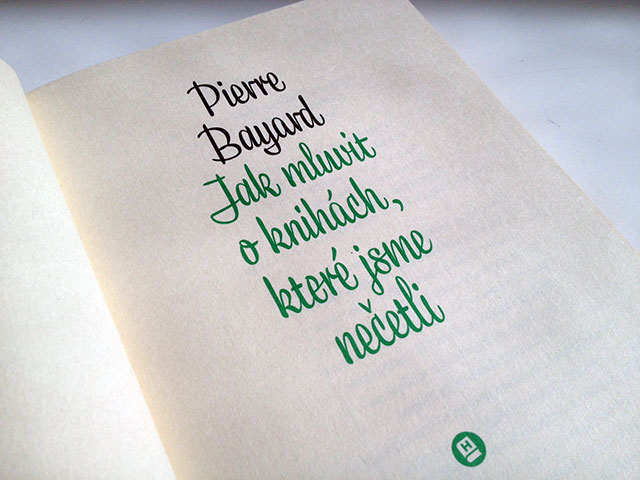 Pierre
Bayard
Jak mluvit
o knihách,
které jsme
nečetli
H